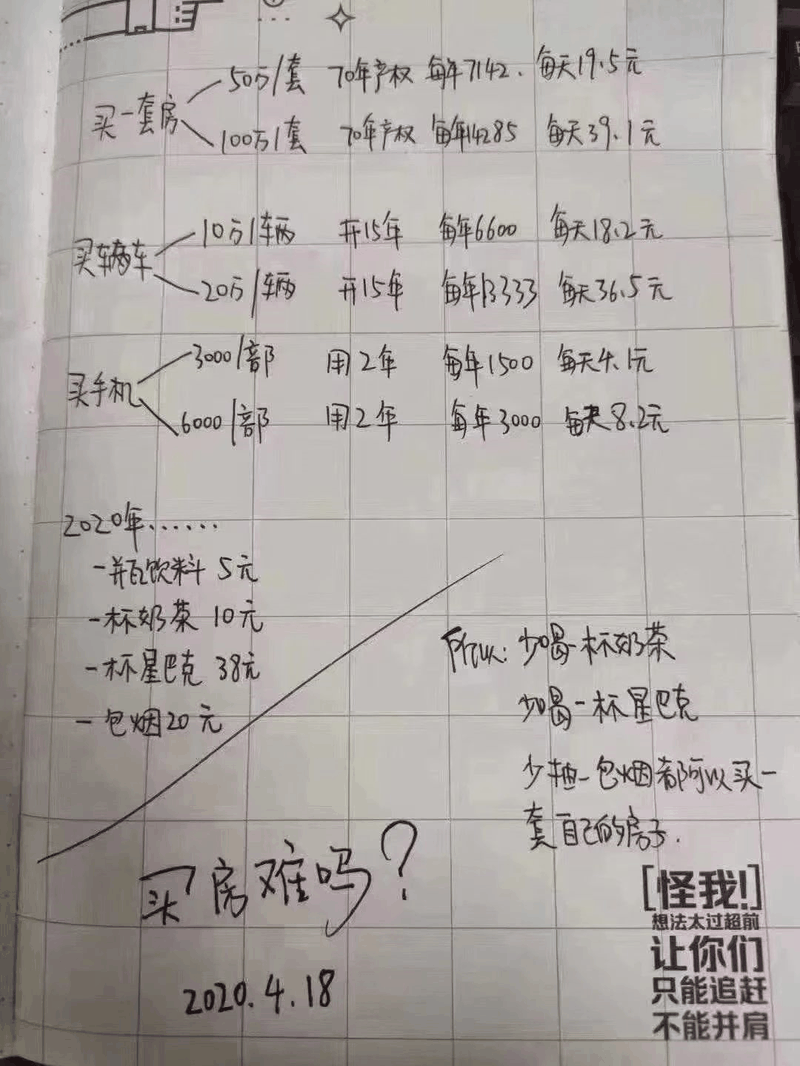 买一套房
50万/套 70年产权 每年7142. 每天19.5元
100万/套 70年产权 每年14285 每天39.1元
买辆车
10万/辆 开15年 每年6600 每天18.2元
20万/辆 开15年 每年13333 每天36.5元
买手机
3000/部 用2年 每年1500 每天4.1元
6000/部 用2年 每年3000 每天8.2元
2020年......
一瓶饮料 5元
一杯奶茶 10元
一杯星巴克 38元
一包烟20元
所以: 少喝一杯奶茶
少喝一杯星巴克
少抽一包烟都可以买一
套自己的房子.
买房难吗?
2020.4.18
[怪我!]
想法太过超前
让你们
只能追赶
不能并肩